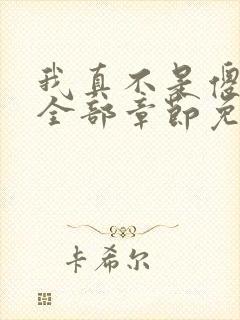 我真不是傻
全部章节免
卡希尔